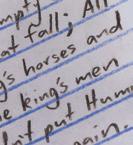 mpty
at fall; All
g's horses and
e king's men
n't put Hum
ain.